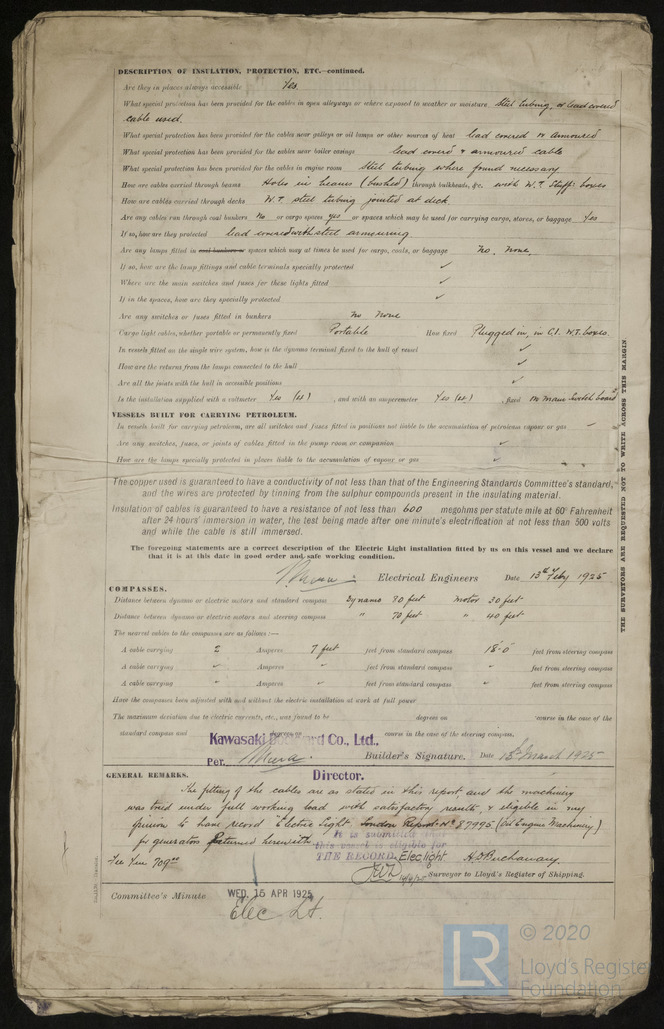 DESCRIPTION OF INSULATION, PROTECTION, ETC.—continued.
Are they in places always accessible Yes.
What special protection has been provided for the cables in open alleyways or where exposed to weather or moisture Steel tubing, or lead covered
cable used.
What special protection has been provided for the cables near galleys or oil lamps or other sources of heat lead covered or armoured
What special protection has been provided for the cables near boiler casings lead covered & armoured cable
What special protection has been provided for the cables in engine room Steel tubing where found necessary
How are cables carried through beams Holes in beams (bushed) through bulkheads, &c. with W.T. Stuffg boxes
How are cables carried through decks W.T steel tubing jointed at deck
Are any cables run through coal bunkers No or cargo spaces yes or spaces which may be used for carrying cargo, stores, or baggage Yes
If so, how are they protected lead covered with steel armouring
Are any lamps fitted in coal bunkers or spaces which may at times be used for cargo, coals, or baggage No. None.
If so, how are the lamp fittings and cable terminals specially protected ✓
Where are the main switches and fuses for these lights fitted ✓
If in the spaces, how are they specially protected ✓
Are any switches or fuses fitted in bunkers No None
Cargo light cables, whether portable or permanently fixed Portable How fixed Plugged in, in C.I. W.T. boxes.
In vessels fitted on the single wire system, how is the dynamo terminal fixed to the hull of vessel ✓
How are the returns from the lamps connected to the hull ✓
Are all the joints with the hull in accessible positions ✓
Is the installation supplied with a voltmeter Yes , and with an amperemeter Yes , fixed on main Switch board
VESSELS BUILT FOR CARRYING PETROLEUM.
In vessels built for carrying petroleum, are all switches and fuses fitted in positions not liable to the accumulation of petroleum vapour or gas
Are any switches, fuses, or joints of cables fitted in the pump room or companion ✓
How are the lamps specially protected in places liable to the accumulation of vapour or gas ✓
The copper used is guaranteed to have a conductivity of not less than that of the Engineering Standards Committee's standard,
and the wires are protected by tinning from the sulphur compounds present in the insulating material.
Insulation of cables is guaranteed to have a resistance of not less than 600 megohms per statute mile at 60° Fahrenheit
after 24 hours' immersion in water, the test being made after one minute's electrification at not less than 500 volts
and while the cable is still immersed.
The foregoing statements are a correct description of the Electric Light installation fitted by us on this vessel and we declare
that it is at this date in good order and safe working condition.
Electrical Engineers Date 13th Feby 1925
COMPASSES.
Distance between dynamo or electric motors and standard compass Dynamo 80 feet motor 30 feet
Distance between dynamo or electric motors and steering compass " 70 feet " 40 feet
The nearest cables to the compasses are as follows:—
A cable carrying 2 Amperes 7 feet feet from standard compass 18-0 feet from steering compass
A cable carrying Amperes feet from standard compass feet from steering compass
A cable carrying Amperes feet from standard compass feet from steering compass
Have the compasses been adjusted with and without the electric installation at work at full power
The maximum deviation due to electric currents, etc., was found to be degrees on course in the case of the
standard compass and degrees on course in the case of the steering compass.
Kawasaki Dockyard Co., Ltd.,
Per. Builder's Signature. Date March 1925
Director.
GENERAL REMARKS.
The fitting of the cables are as stated in this report and the machinery
was tried under full working load with satisfactory results, & eligible in my
opinion to have record "Electric Light. London Report No 87995 (Oil Engine Machinery)
for generators returned herewith
It is submitted that
this vessel is eligible for
THE RECORD. Elec light
Fee Yen 709.00 H. Buchanan.
Surveyor to Lloyd's Register of Shipping.
Committee's Minute WED. 15 APR 1925
Elec Lt.
THE SURVEYORS ARE REQUESTED NOT TO WRITE ACROSS THIS MARGIN
LR
© 2020
Lloyd's Register
Foundation